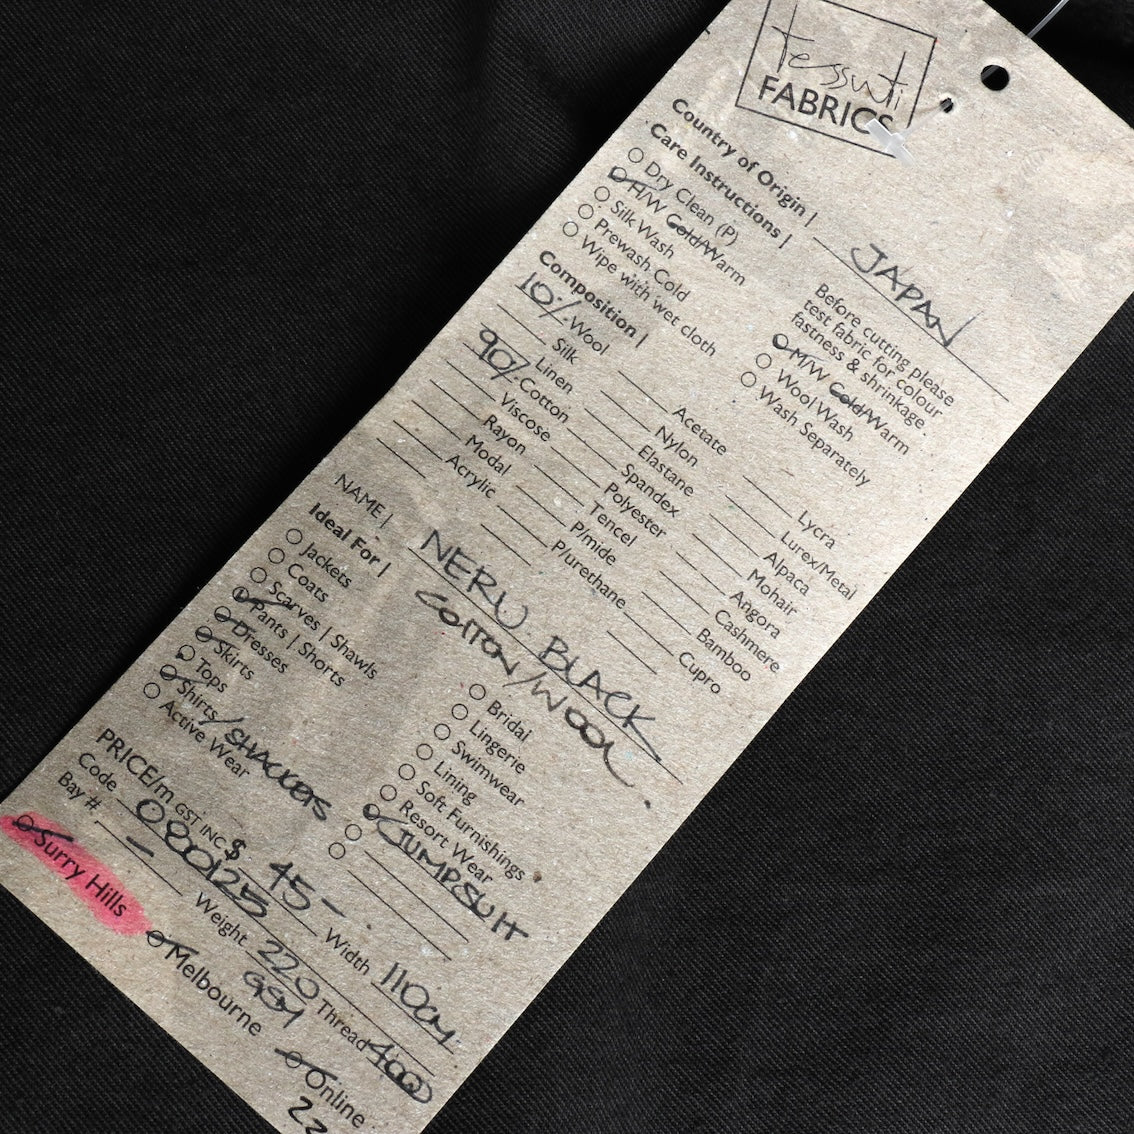 tessuti
FABRICS
Country of Origin | JAPAN
Care Instructions |
Dry Clean (P)
H/W Cold/Warm
Silk Wash
Prewash Cold
Wipe with wet cloth
Before cutting please
test fabric for colour
fastness & shrinkage.
M/W Cold/Warm
Wool Wash
Wash Separately
Composition |
10% Wool
Silk
Linen
90% Cotton
Viscose
Rayon
Modal
Acrylic
Acetate
Nylon
Elastane
Spandex
Polyester
Tencel
P/mide
P/urethane
Lycra
Lurex/Metal
Alpaca
Mohair
Angora
Cashmere
Bamboo
Cupro
NAME | NERU BLACK
COTTON/WOOL.
Ideal For |
Jackets
Coats
Scarves | Shawls
Pants | Shorts
Dresses
Skirts
Tops
Shirts/SHACKETS
Active Wear
Bridal
Lingerie
Swimwear
Lining
Soft Furnishings
Resort Wear
JUMPSUIT
PRICE/m GST INC $ 45-
Width 110cm
Code 0800125
Weight 220 GSM
Thread 400
Bay # -
Surry Hills
Melbourne
Online